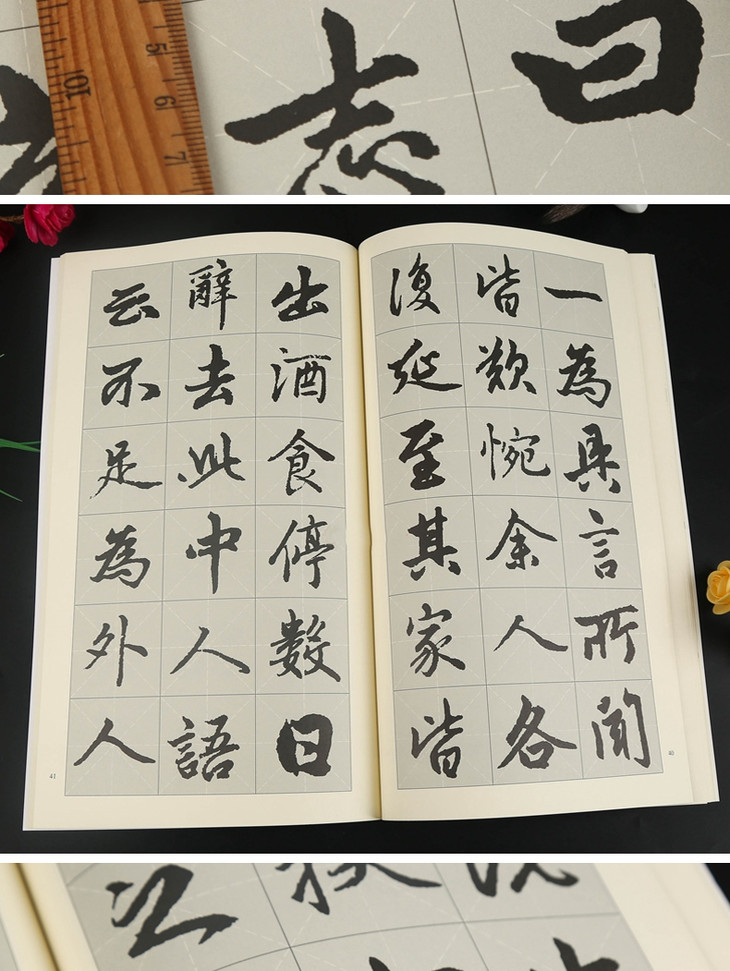 5
6
7
10
志
曰
一為具言所聞
皆歎惋余人各
復延至其家皆
40
出酒食停數日
辭去此中人語
云不足為外人
41